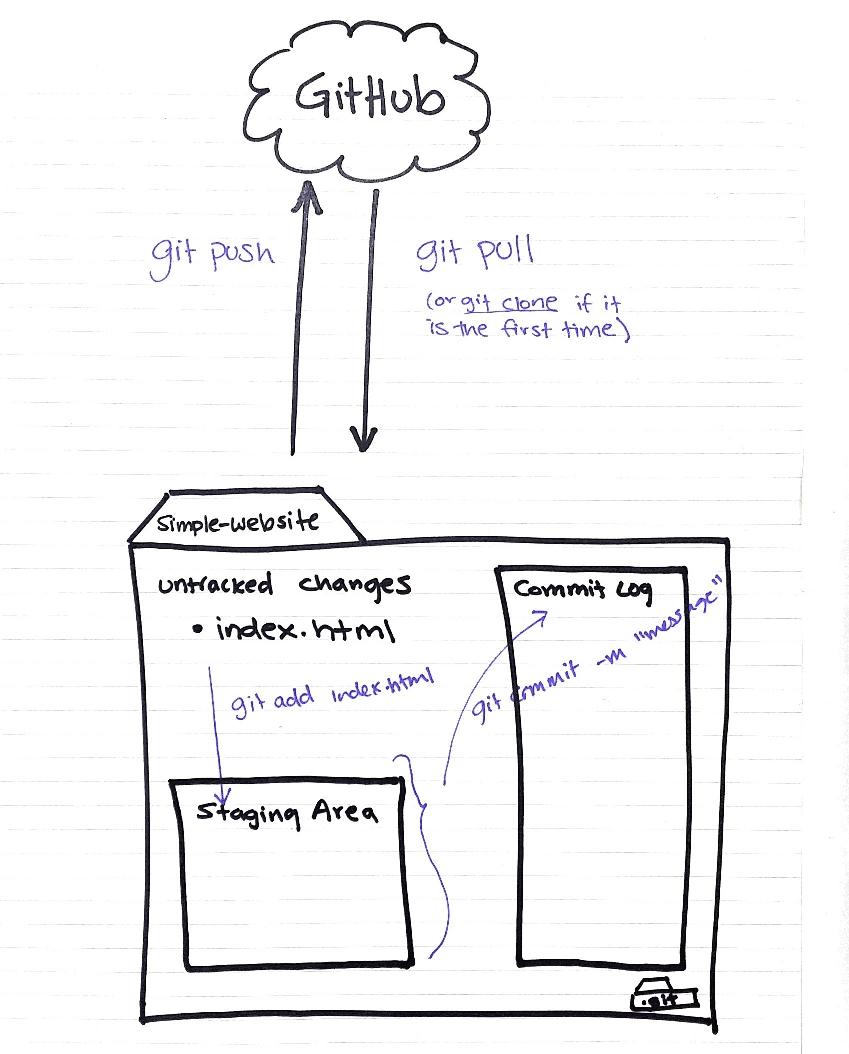 GitHub
git push
git pull
(or git clone if it
is the first time)
simple-website
untracked changes
• index.html
git add index.html
Staging Area
Commit Log
git commit -m "message"
.git